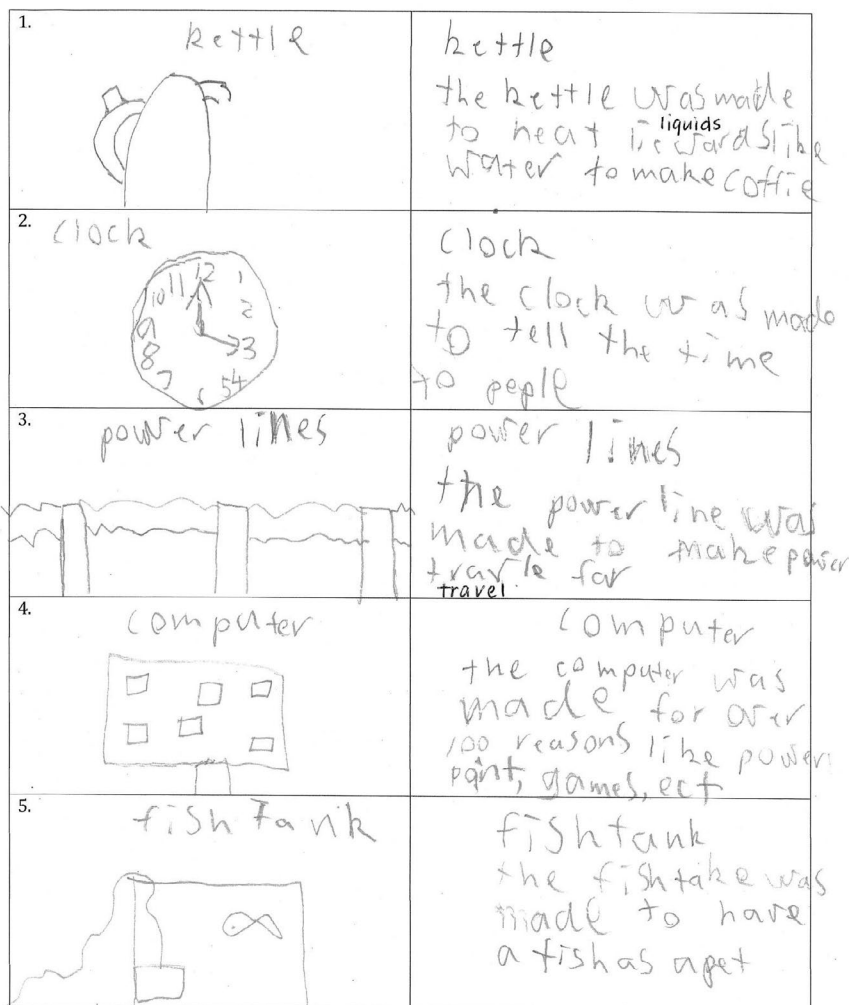 1.
kettle
kettle
the kettle was made
liquids
to heat licwards like
water to make coffie
2.
clock
12
11
1
10
2
9
3
8
4
7
5
6
clock
the clock was made
to tell the time
to peple
3.
power lines
power lines
the power line was
made to make power
travle far
travel
4.
computer
computer
the computer was
made for over
100 reasons like power
point, games, ect
5.
fish tank
fish tank
the fish take was
made to have
a fish as a pet